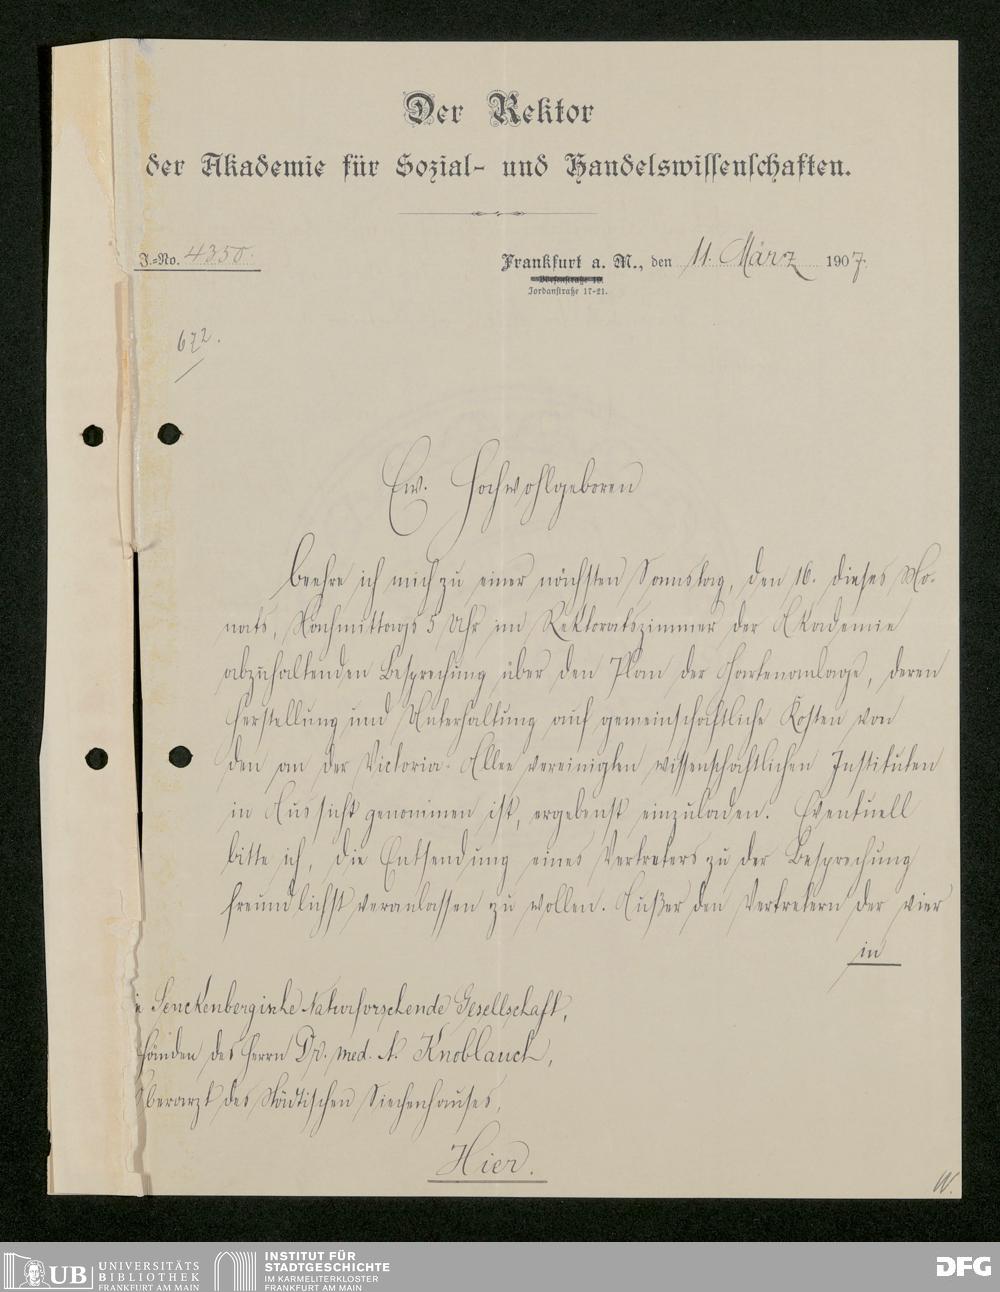 Der Rektor
der Akademie für Sozial- und Handelswissenschaften.
J.-No. 4350.
Frankfurt a. M., den 11. März 1907.
Jordanstraße 17-21.
672.
Ew. Hochwohlgeboren
beehre ich mich zu einer nächsten Samstag, den 16. dieses Mo-
nats, Nachmittags 5 Uhr im Rektoratszimmer der Akademie
abzuhaltenden Besprechung über den Plan der Gartenanlage, deren
Herstellung und Unterhaltung auf gemeinschaftliche Kosten von
den an der Victoria-Allee vereinigten wissenschaftlichen Instituten
in Aussicht genommen ist, ergebenst einzuladen. Eventuell
bitte ich, die Entsendung eines Vertreters zu der Besprechung
freundlichst veranlassen zu wollen. Außer den Vertretern der vier
in
Senckenbergische Naturforschende Gesellschaft,
Händen des Herrn Dr. med. A. Knoblauch,
Oberarzt des Städtischen Siechenhauses,
Hier.
UB UNIVERSITÄTS
BIBLIOTHEK
FRANKFURT AM MAIN
INSTITUT FÜR
STADTGESCHICHTE
IM KARMELITERKLOSTER
FRANKFURT AM MAIN
DFG